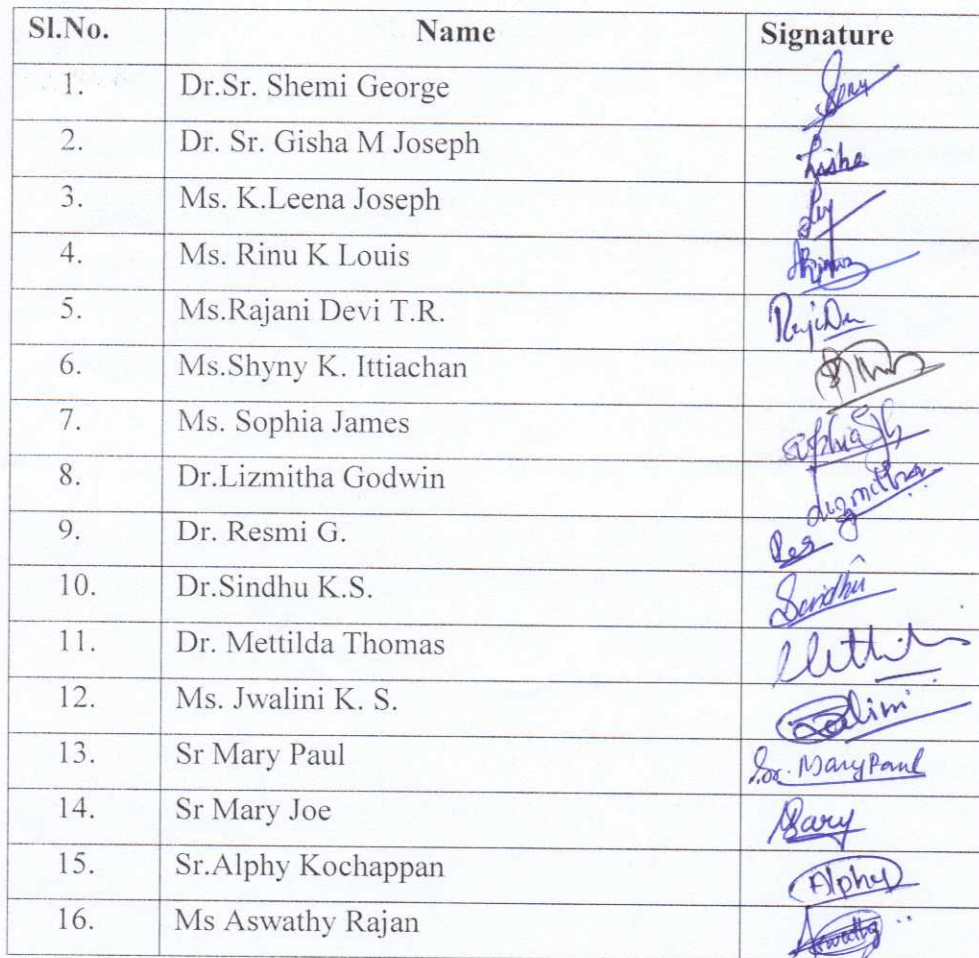 Sl.No. Name Signature
1. Dr.Sr. Shemi George
2. Dr. Sr. Gisha M Joseph Gisha
3. Ms. K.Leena Joseph
4. Ms. Rinu K Louis
5. Ms.Rajani Devi T.R.
6. Ms.Shyny K. Ittiachan
7. Ms. Sophia James
8. Dr.Lizmitha Godwin Lizmitha
9. Dr. Resmi G. Res
10. Dr.Sindhu K.S. Sindhu
11. Dr. Mettilda Thomas
12. Ms. Jwalini K. S.
13. Sr Mary Paul Sr. Mary Paul
14. Sr Mary Joe Mary
15. Sr.Alphy Kochappan Alphy
16. Ms Aswathy Rajan Aswathy